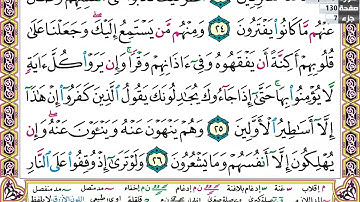 صفحة 130
جزء 7
عَنْهُم مَّا كَانُوا۟ يَفْتَرُونَ ٢٤ وَمِنْهُم مَّن يَسْتَمِعُ إِلَيْكَ ۖ وَجَعَلْنَا عَلَىٰ
قُلُوبِهِمْ أَكِنَّةً أَن يَفْقَهُوهُ وَفِىٓ ءَاذَانِهِمْ وَقْرًا ۚ وَإِن يَرَوْا۟ كُلَّ ءَايَةٍ
لَّا يُؤْمِنُوا۟ بِهَا ۚ حَتَّىٰٓ إِذَا جَآءُوكَ يُجَٰدِلُونَكَ يَقُولُ ٱلَّذِينَ كَفَرُوٓا۟ إِنْ هَٰذَآ
إِلَّآ أَسَٰطِيرُ ٱلْأَوَّلِينَ ٢٥ وَهُمْ يَنْهَوْنَ عَنْهُ وَيَنْـَٔوْنَ عَنْهُ ۖ وَإِن
يُهْلِكُونَ إِلَّآ أَنفُسَهُمْ وَمَا يَشْعُرُونَ ٢٦ وَلَوْ تَرَىٰٓ إِذْ وُقِفُوا۟ عَلَى ٱلنَّارِ
م إقلاب غنة إدغام بلاغنة إدغام إخفاء مد متصل مد منفصل